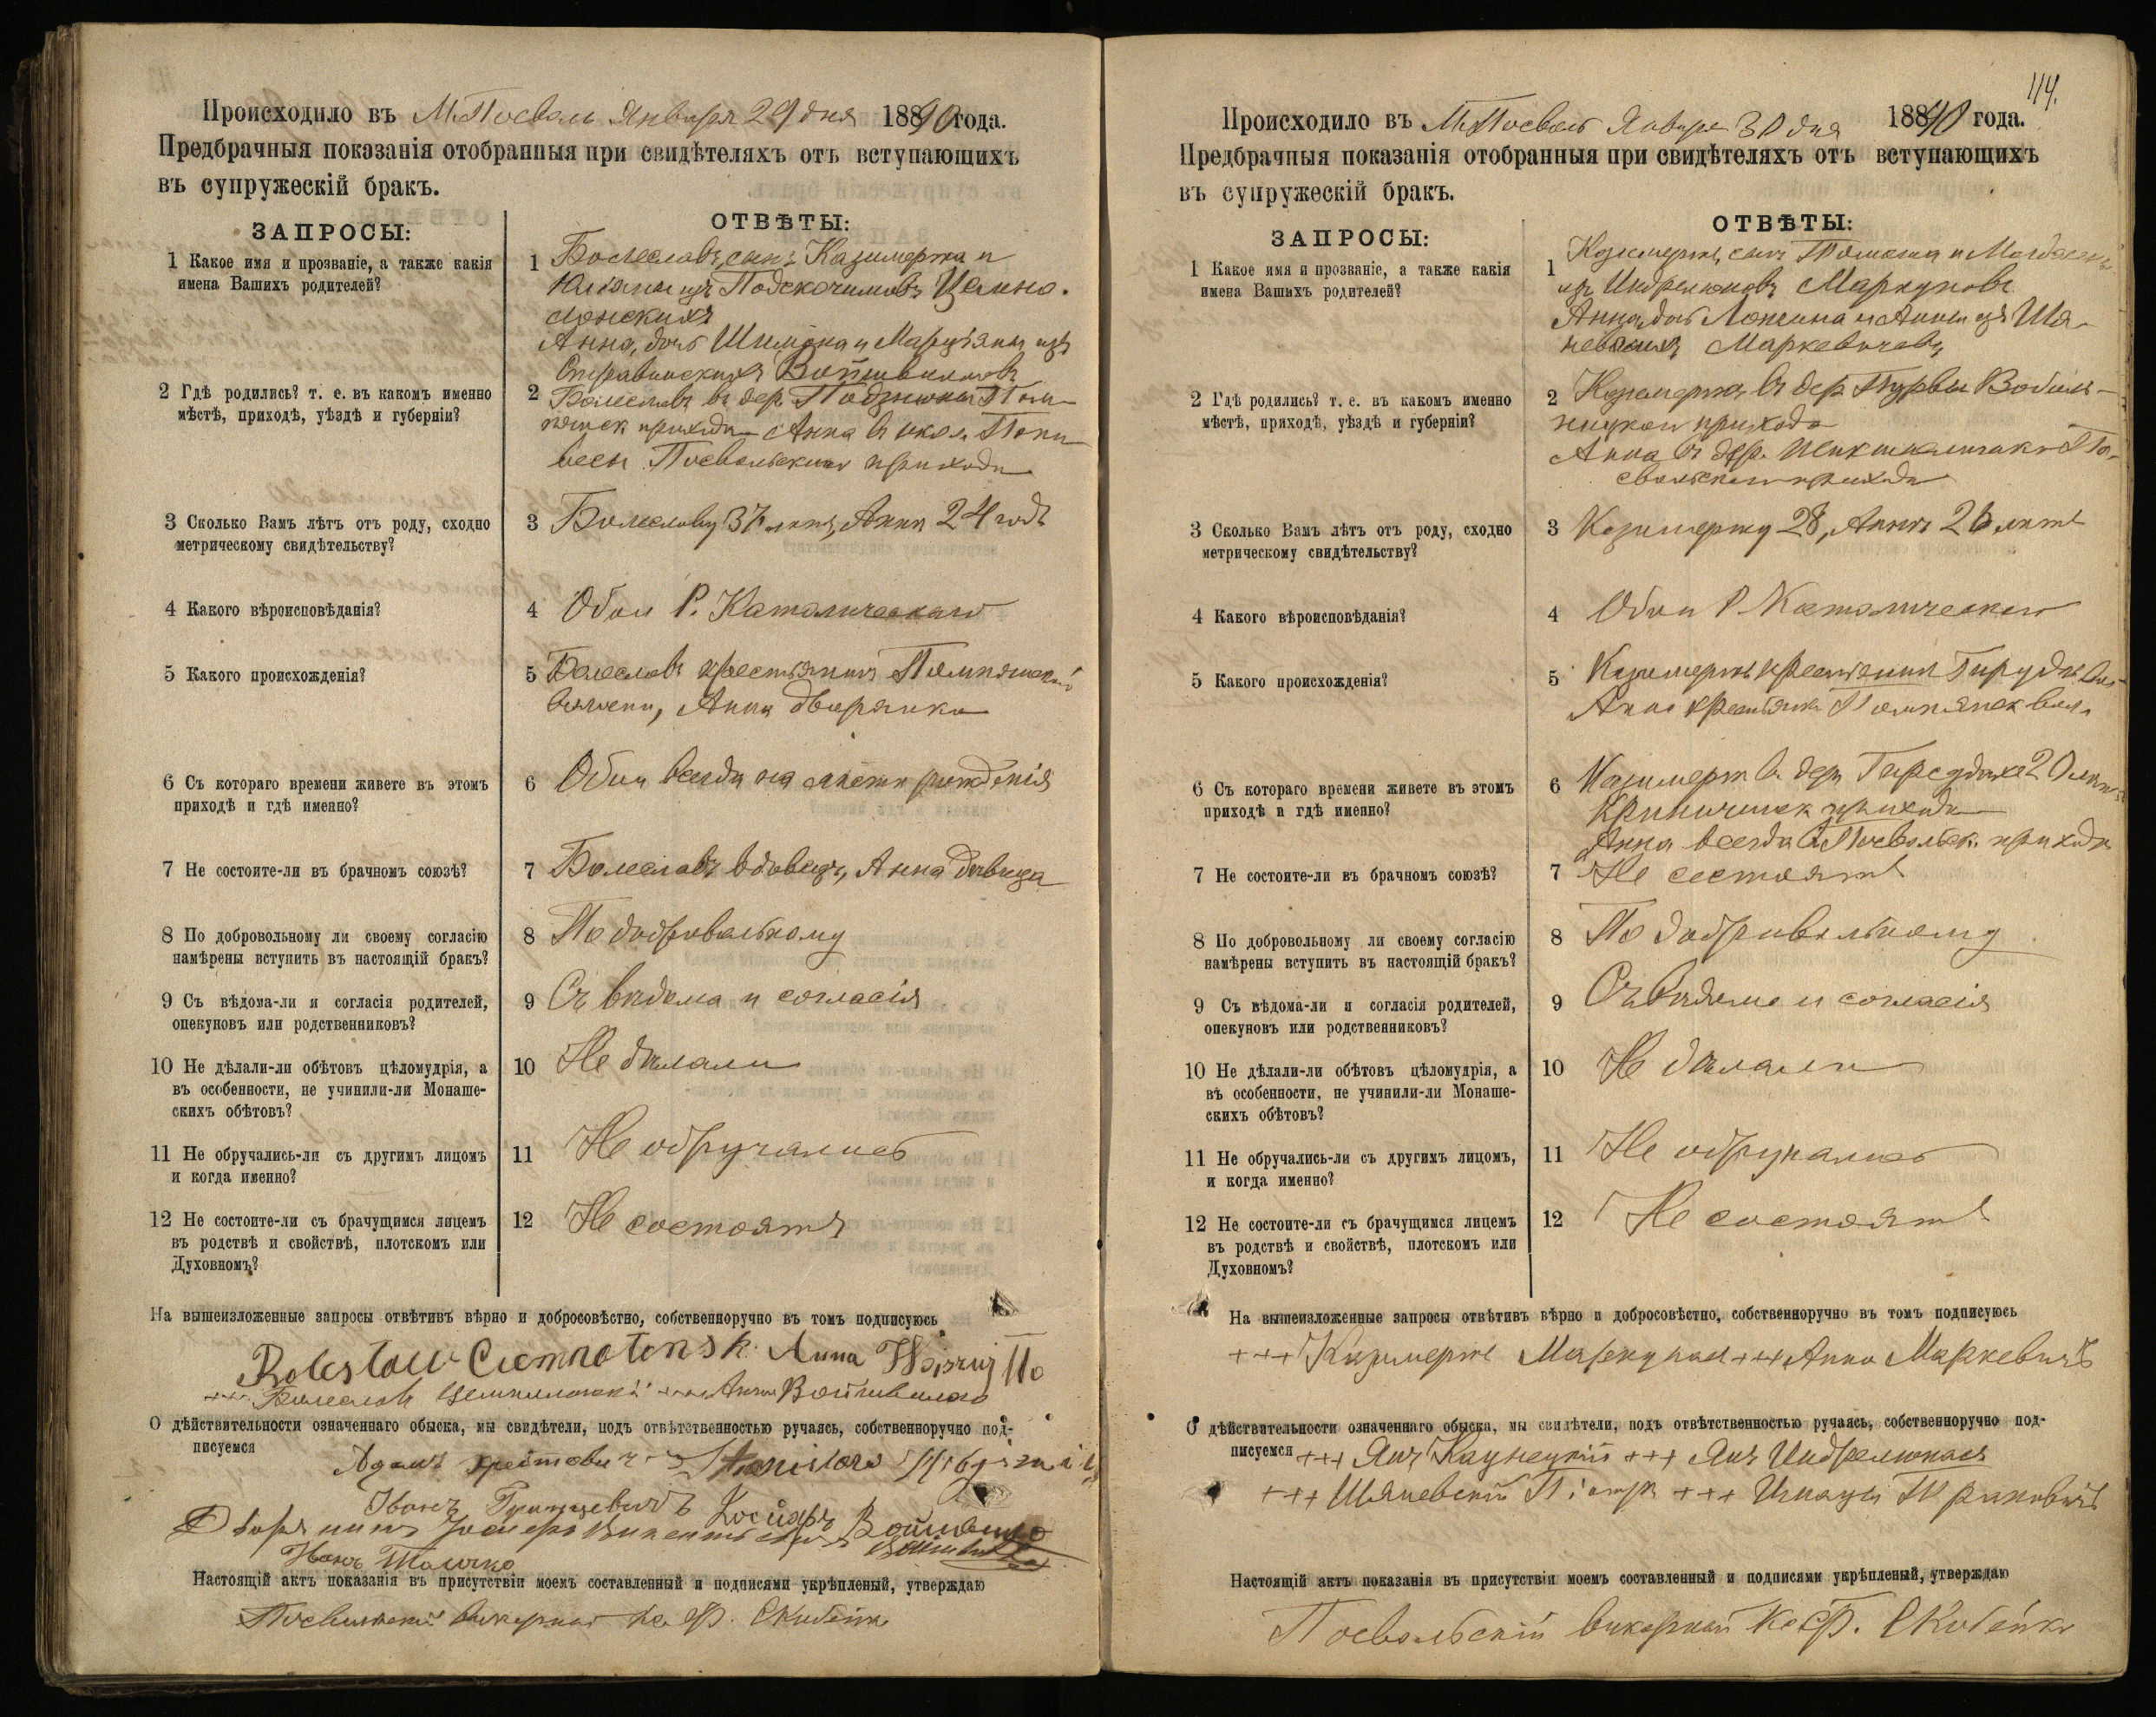 Происходило въ М. Посволь Января 29 дня 1890 года.
Предбрачныя показанія отобранныя при свидѣтеляхъ отъ вступающихъ
въ супружескій бракъ.
ЗАПРОСЫ:
ОТВѢТЫ:
1 Какое имя и прозваніе, а также какія
имена Вашихъ родителей?
1 Болеславъ, сынъ Казимержа и
Юліаны изъ Подскочимовъ Цемно-
лонскихъ
Анна, дочь Шимона и Марціяны изъ
Войшвилловъ
2 Гдѣ родились? т. е. въ какомъ именно
мѣстѣ, приходѣ, уѣздѣ и губерніи?
2 Болеславъ въ дер. Помп-
янск прихода Анна въ окол.
Посвольскаго прихода
3 Сколько Вамъ лѣтъ отъ роду, сходно
метрическому свидѣтельству?
3 Болеславу 37 лѣтъ, Аннѣ 24 года
4 Какого вѣроисповѣданія?
4 Обои Р. Католическаго
5 Какого происхожденія?
5 Болеславъ крестьянинъ Помпянской
волости, Анна дворянка
6 Съ котораго времени живете въ этомъ
приходѣ и гдѣ имеано?
6 Обои всегда на мѣстѣ рожденія
7 Не состоите-ли въ брачномъ союзѣ?
7 Болеславъ вдовецъ, Анна дѣвица
8 По добровольному ли своему согласію
намѣрены вступить въ настоящій бракъ?
8 По добровольному
9 Съ вѣдома-ли и согласія родителей,
опекуновъ или родственниковъ?
9 Съ вѣдома и согласія
10 Не дѣлали-ли обѣтовъ цѣломудрія, а
въ особенности, не учинили-ли Монаше-
скихъ обѣтовъ?
10 Не дѣлали
11 Не обручались-ли съ другимъ лицомъ
и когда именно?
11 Не обручались
12 Не состоите-ли съ брачущимся лицемъ
въ родствѣ и свойствѣ, плотскомъ или
Духовномъ?
12 Не состоятъ
На вышеизложенные запросы отвѣтивъ вѣрно и добросовѣстно, собственноручно въ томъ подписуюсь
Bolesław Anna
+++ Болеславъ +++ Анна Войшвилло
О дѣйствительности означеннаго обыска, мы свидѣтели, подъ отвѣтственностью ручаясь, собственноручно под-
писуемся
Адамъ
Иванъ
Дворянинъ
Иванъ
Настоящій актъ показанія въ присутствіи моемъ составленный и подписями укрѣпленый, утверждаю
Посвольскій викарный Кс. Ф. Скибейко
114.
Происходило въ М. Посволь Января 30 дня 1890 года.
Предбрачныя показанія отобранныя при свидѣтеляхъ отъ вступающихъ
въ супружескій бракъ.
ЗАПРОСЫ:
ОТВѢТЫ:
1 Какое имя и прозваніе, а также какія
имена Вашихъ родителей?
1 Казимержъ, сынъ Томаша и Магдалены
изъ Индрелюновъ Маркуновъ
Анна, дочь и Анны изъ Ша-
невскихъ Маркевичевъ
2 Гдѣ родились? т. е. въ какомъ именно
мѣстѣ, приходѣ, уѣздѣ и губерніи?
2 Казимержъ въ дер. Воболь-
ницкаго прихода
Анна въ дер. По-
свольскаго прихода
3 Сколько Вамъ лѣтъ отъ роду, сходно
метрическому свидѣтельству?
3 Казимержу 28, Аннѣ 26 лѣтъ
4 Какого вѣроисповѣданія?
4 Обои Р. Католическаго
5 Какого происхожденія?
5 Казимержъ крестьянинъ
Анна крестьянка Помпянск вол.
6 Съ котораго времени живете въ этомъ
приходѣ и гдѣ именно?
6 Казимержъ въ дер. 20 лѣтъ
прихода
Анна всегда въ Посвольск. приходѣ
7 Не состоите-ли въ брачномъ союзѣ?
7 Не состоятъ
8 По добровольному ли своему согласію
намѣрены вступить въ настоящій бракъ?
8 По добровольному
9 Съ вѣдома-ли и согласія родителей,
опекуновъ или родственниковъ?
9 Съ вѣдома и согласія
10 Не дѣлали-ли обѣтовъ цѣломудрія, а
въ особенности, не учинили-ли Монаше-
скихъ обѣтовъ?
10 Не дѣлали
11 Не обручались-ли съ другимъ лицомъ,
и когда именно?
11 Не обручались
12 Не состоите-ли съ брачущимся лицемъ
въ родствѣ и свойствѣ, плотскомъ или
Духовномъ?
12 Не состоятъ
На вышеизложенные запросы отвѣтивъ вѣрно и добросовѣстно, собственноручно въ томъ подписуюсь
+++ Казимержъ Маркунасъ +++ Анна Маркевичъ
О дѣйствительности означеннаго обыска, мы свидѣтели, подъ отвѣтственностью ручаясь, собственноручно под-
писуемся +++ Янъ +++ Янъ Индрелюнасъ
+++ Шяневскій Піотръ +++ Игнацы
Настоящій актъ показанія въ присутствіи моемъ составленный и подписями укрѣпленый, утверждаю
Посвольскій викарный Кс. Ф. Скибейко